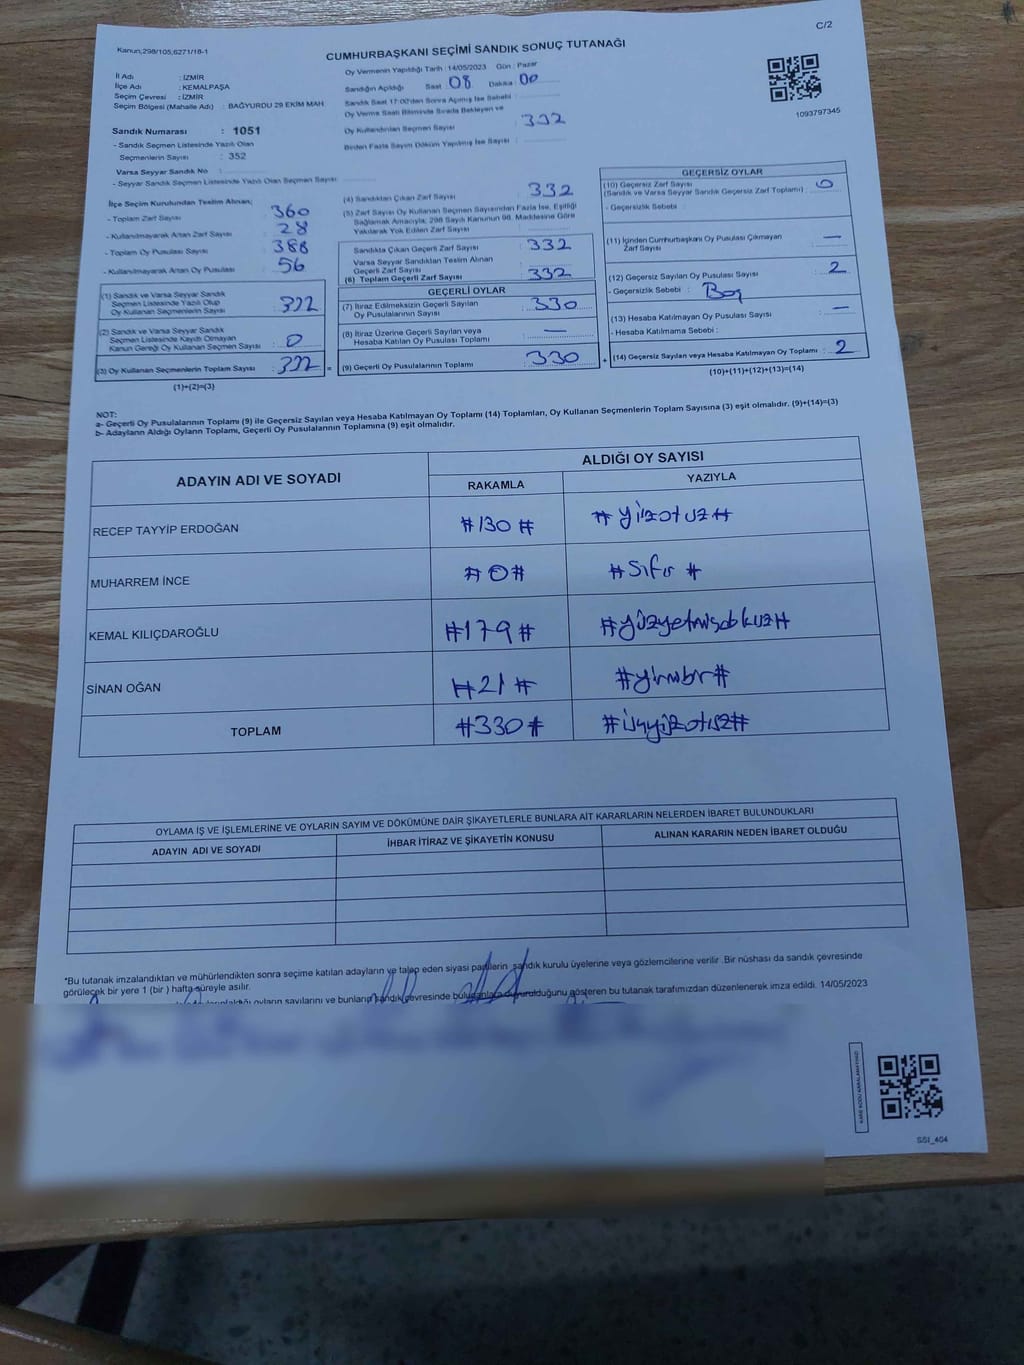 C/2
Kanun;298/105,6271/18-1
CUMHURBAŞKANI SEÇİMİ SANDIK SONUÇ TUTANAĞI
İl Adı : İZMİR
İlçe Adı : KEMALPAŞA
Seçim Çevresi : İZMİR
Seçim Bölgesi (Mahalle Adı) : BAĞYURDU 29 EKİM MAH
Sandık Numarası : 1051
- Sandık Seçmen Listesinde Yazılı Olan
Seçmenlerin Sayısı : 352
Varsa Seyyar Sandık No :
- Seyyar Sandık Seçmen Listesinde Yazılı Olan Seçmen Sayısı:
Oy Vermenin Yapıldığı Tarih : 14/05/2023 Gün : Pazar
Sandığın Açıldığı Saat : 08 Dakika : 00
Sandık Saat 17:00'den Sonra Açılmış İse Sebebi :
Oy Verme Saati Bitiminde Sırada Bekleyen ve
Oy Kullandırılan Seçmen Sayısı : 332
Birden Fazla Sayım Döküm Yapılmış İse Sayısı :
1093797345
İlçe Seçim Kurulundan Teslim Alınan;
- Toplam Zarf Sayısı : 360
- Kullanılmayarak Artan Zarf Sayısı : 28
- Toplam Oy Pusulası Sayısı : 388
- Kullanılmayarak Artan Oy Pusulası : 56
(1) Sandık ve Varsa Seyyar Sandık
Seçmen Listesinde Yazılı Olup
Oy Kullanan Seçmen Sayısı : 332
(2) Sandık ve Varsa Seyyar Sandık
Seçmen Listesinde Kayıtlı Olmayan
Kanun Gereği Oy Kullanan Seçmen Sayısı : 0
(3) Oy Kullanan Seçmenlerin Toplam Sayısı : 332 =
(1)+(2)=(3)
(4) Sandıktan Çıkan Zarf Sayısı : 332
(5) Zarf Sayısı Oy Kullanan Seçmen Sayısından Fazla İse, Eşitliği
Sağlamak Amacıyla; 298 Sayılı Kanunun 98. Maddesine Göre
Yakılarak Yok Edilen Zarf Sayısı :
Sandıkta Çıkan Geçerli Zarf Sayısı : 332
Varsa Seyyar Sandıktan Teslim Alınan
Geçerli Zarf Sayısı :
(6) Toplam Geçerli Zarf Sayısı : 332
GEÇERLİ OYLAR
(7) İtiraz Edilmeksizin Geçerli Sayılan
Oy Pusulalarının Sayısı : 330
(8) İtiraz Üzerine Geçerli Sayılan veya
Hesaba Katılan Oy Pusulası Toplamı : —
(9) Geçerli Oy Pusulalarının Toplamı : 330 +
GEÇERSİZ OYLAR
(10) Geçersiz Zarf Sayısı : 0
(Sandık ve Varsa Seyyar Sandık Geçersiz Zarf Toplamı)
- Geçersizlik Sebebi :
(11) İçinden Cumhurbaşkanı Oy Pusulası Çıkmayan
Zarf Sayısı : —
(12) Geçersiz Sayılan Oy Pusulası Sayısı : 2
- Geçersizlik Sebebi : Boş
(13) Hesaba Katılmayan Oy Pusulası Sayısı : —
- Hesaba Katılmama Sebebi :
(14) Geçersiz Sayılan veya Hesaba Katılmayan Oy Toplamı : 2
(10)+(11)+(12)+(13)=(14)
NOT:
a- Geçerli Oy Pusulalarının Toplamı (9) ile Geçersiz Sayılan veya Hesaba Katılmayan Oy Toplamı (14) Toplamları, Oy Kullanan Seçmenlerin Toplam Sayısına (3) eşit olmalıdır. (9)+(14)=(3)
b- Adayların Aldığı Oyların Toplamı, Geçerli Oy Pusulalarının Toplamına (9) eşit olmalıdır.
ADAYIN ADI VE SOYADI ALDIĞI OY SAYISI
RAKAMLA YAZIYLA
RECEP TAYYİP ERDOĞAN #130# #yüzotuz#
MUHARREM İNCE #0# #Sıfır#
KEMAL KILIÇDAROĞLU #179# #yüzyetmişdokuz#
SİNAN OĞAN #21# #yirmibir#
TOPLAM #330# #üçyüzotuz#
OYLAMA İŞ VE İŞLEMLERİNE VE OYLARIN SAYIM VE DÖKÜMÜNE DAİR ŞİKAYETLERLE BUNLARA AİT KARARLARIN NELERDEN İBARET BULUNDUKLARI
ADAYIN ADI VE SOYADI İHBAR İTİRAZ VE ŞİKAYETİN KONUSU ALINAN KARARIN NEDEN İBARET OLDUĞU
*Bu tutanak imzalandıktan ve mühürlendikten sonra seçime katılan adayların ve talep eden siyasi partilerin sandık kurulu üyelerine veya gözlemcilerine verilir .Bir nüshası da sandık çevresinde
görülecek bir yere 1 (bir ) hafta süreyle asılır.
oyların sayılarını ve bunların sandık çevresinde bulunanlara duyurulduğunu gösteren bu tutanak tarafımızdan düzenlenerek imza edildi. 14/05/2023
KARE KODU KARALAMAYINIZ!
SS1_404